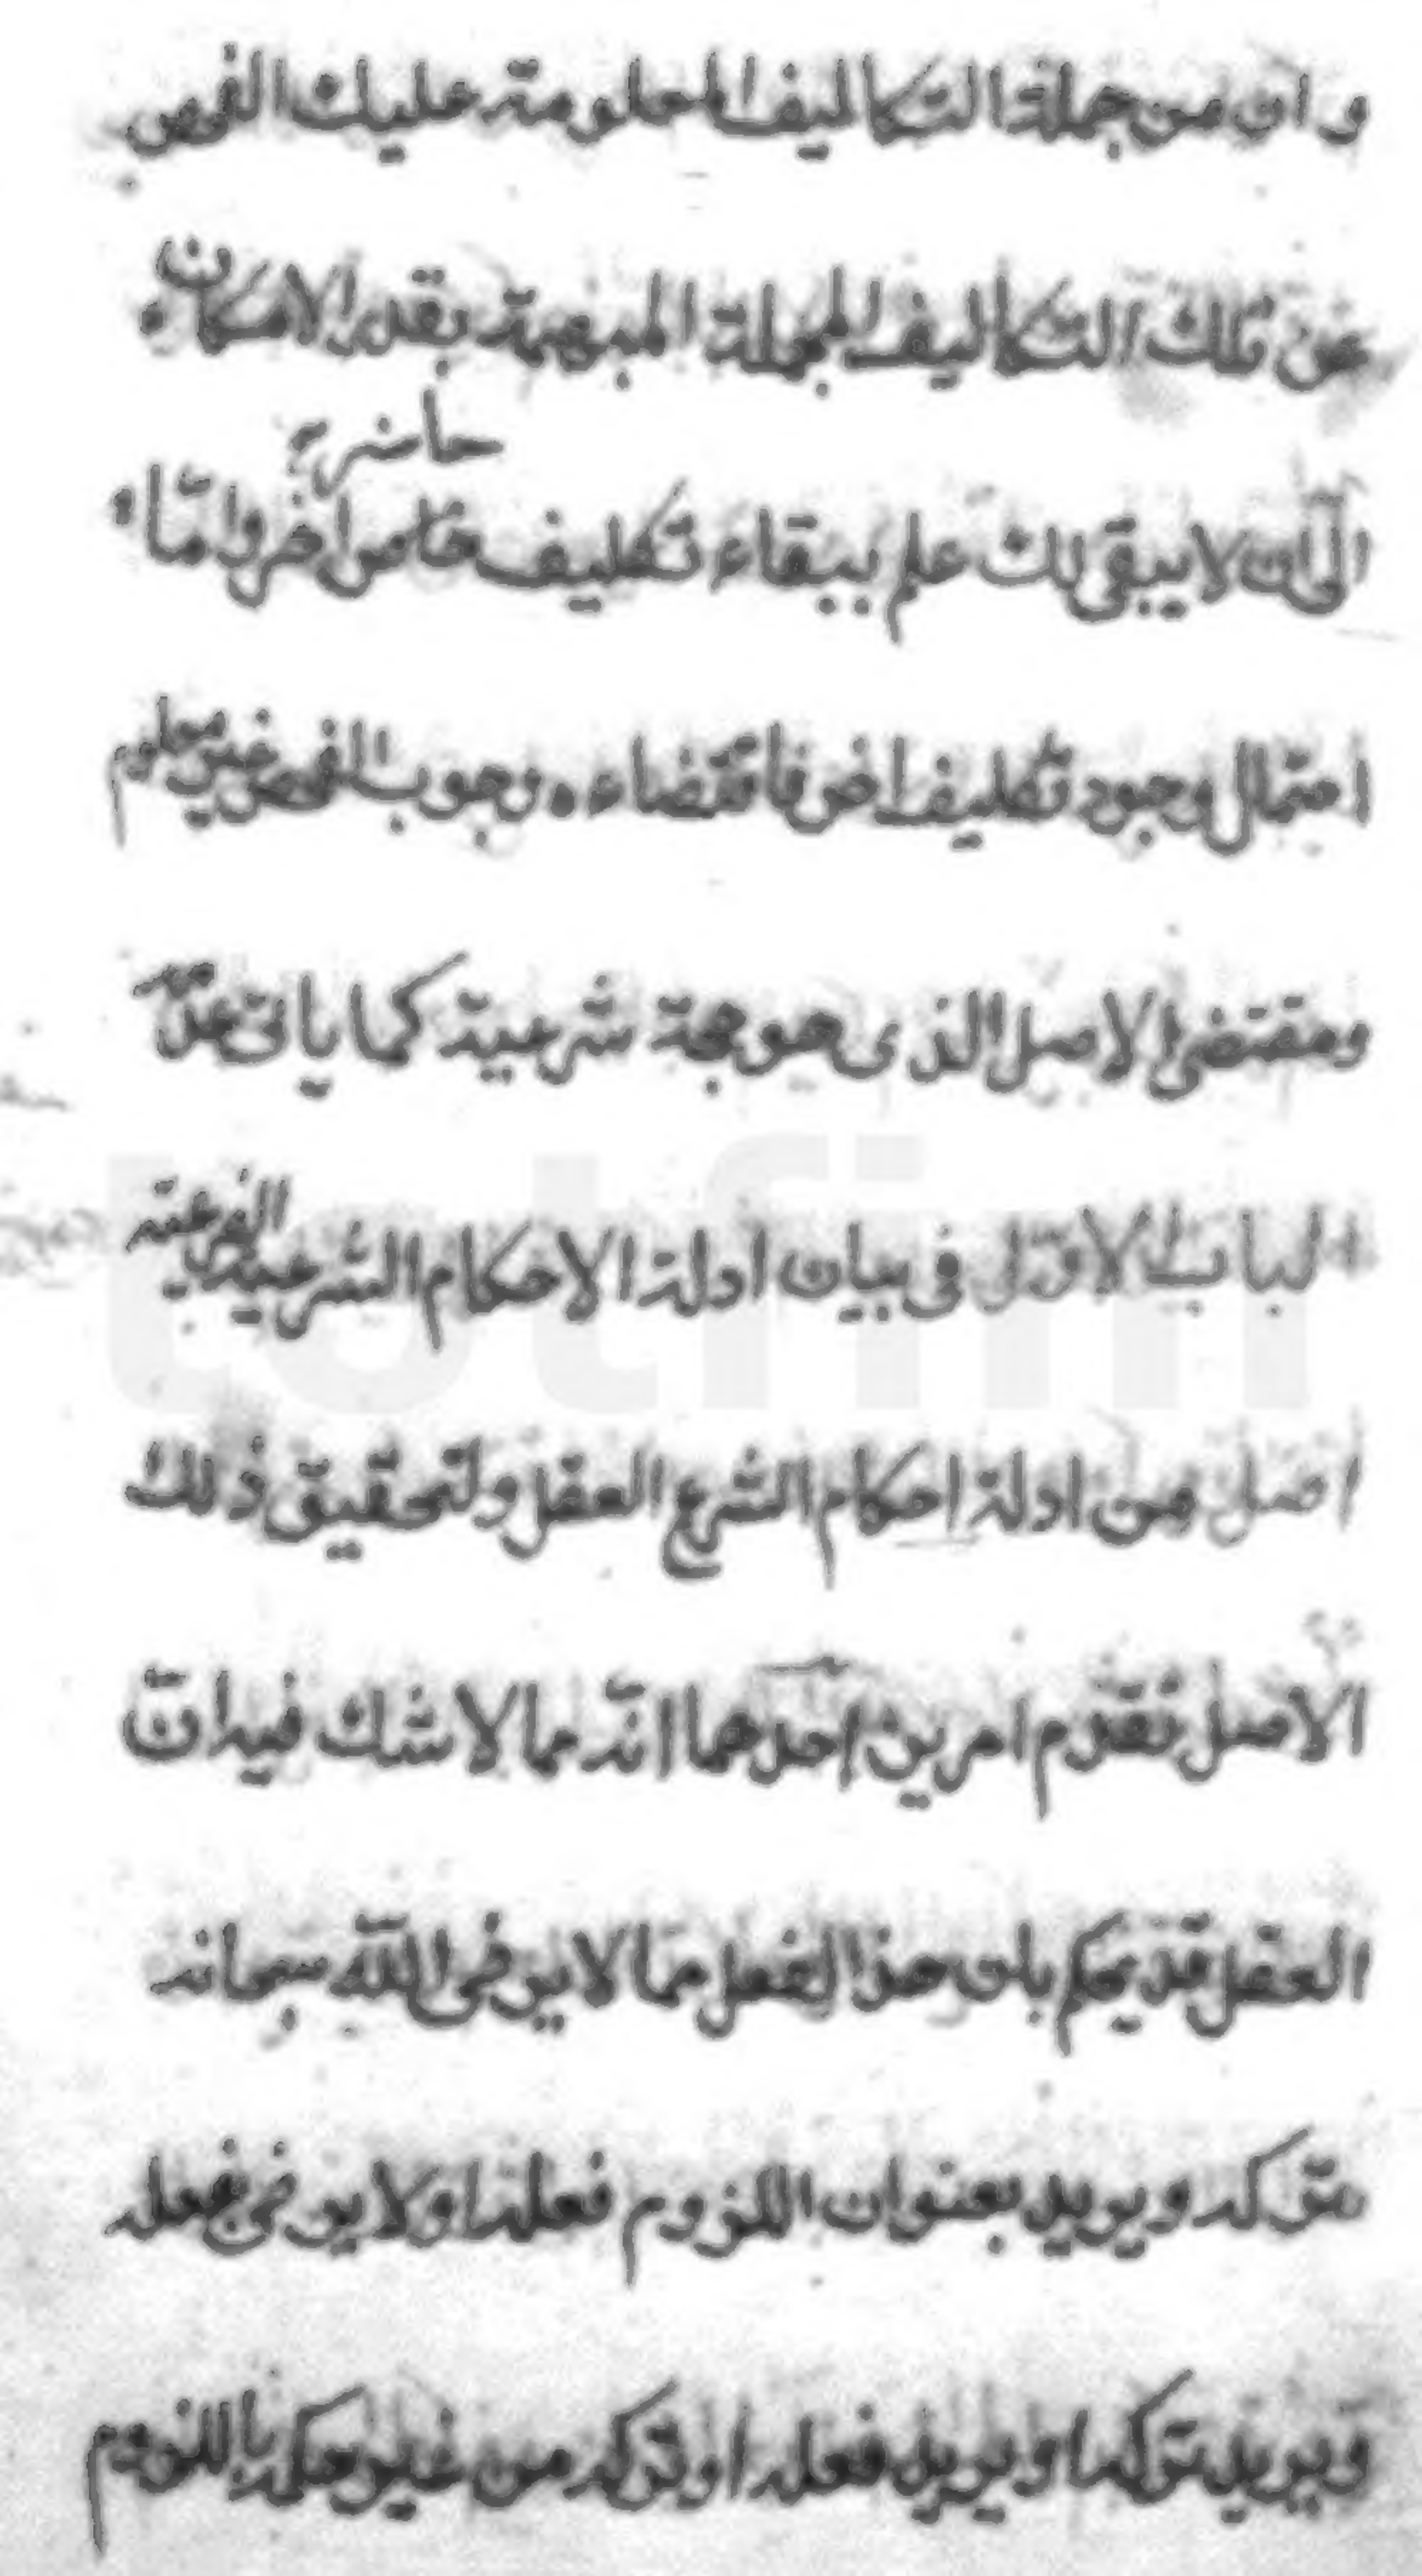 وان من جملة التكاليف المعلومة عليك الفحص
عن تلك التكاليف المجملة المبهمة بقدر الامكان
حاضرة
الى ان لا يبقى لك علم ببقاء تكليف خاص اخر وامّا
احتمال وجود تكليف اخر فاقتضاءه وجوب الفحص غير معلوم
ومقتضى الاصل الذى هو حجة شرعية كما ياتى عدمه
الباب الاوّل فى بيان ادلة الاحكام الشرعية الفرعية
اصل من ادلة احكام الشرع العقل ولتحقيق ذلك
الاصل نقدّم امرين احدهما انّه مما لا شك فيه انّ
العقل قد يحكم بان هذا الفعل مما لا يرضى اللّه سبحانه
بتركه ويريد بعنوان اللزوم فعله او لا يرضى بفعله
ويريد تركه او يريد فعله او تركه من غير حكمه باللزوم
totfim